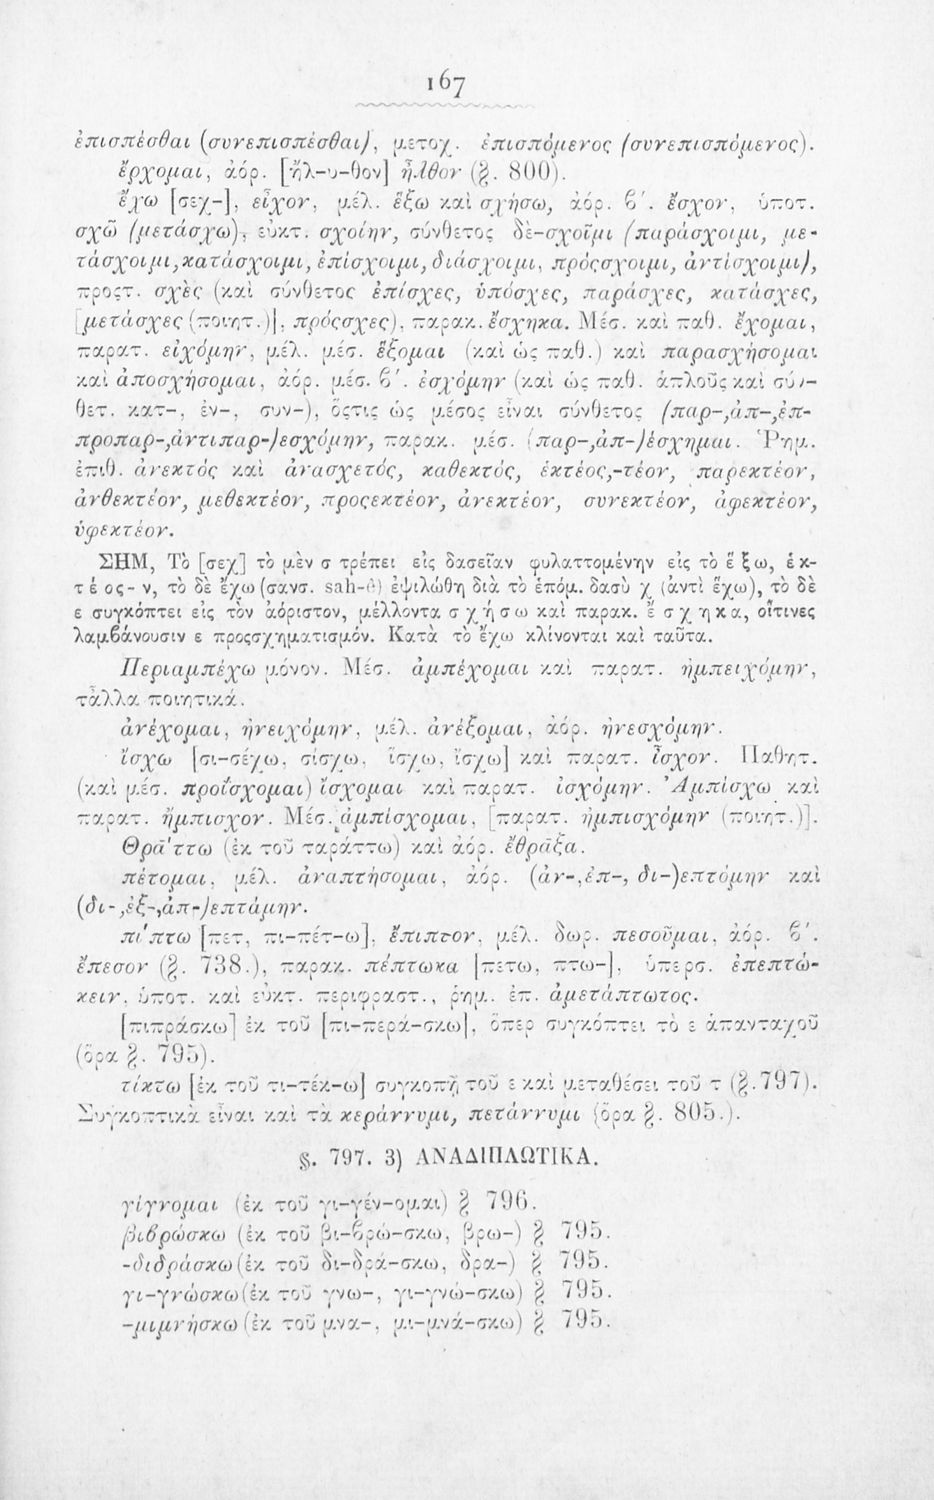 167
ἐπισπέσθαι (συνεπισπέσθαι), μετοχ. ἐπισπόμενος (συνεπισπόμενος).
ἔρχομαι, ἀόρ. [ἤλ-υ-θον] ἦλθον (§. 800).
ἔχω [σεχ-], εἶχον, μέλ. ἕξω καὶ σχήσω, ἀόρ. β´. ἔσχον, ὑποτ.
σχῶ (μετάσχω), εὐκτ. σχοίην, σύνθετος δὲ-σχοῖμι (παράσχοιμι, με-
τάσχοιμι, κατάσχοιμι, ἐπίσχοιμι, διάσχοιμι, πρόςσχοιμι, ἀντίσχοιμι),
προςτ. σχὲς (καὶ σύνθετος ἐπίσχες, ὑπόσχες, παράσχες, κατάσχες,
[μετάσχες (ποιητ.)], πρόςσχες), παρακ. ἔσχηκα. Μέσ. καὶ παθ. ἔχομαι,
παρατ. εἰχόμην, μέλ. μέσ. ἕξομαι (καὶ ὡς παθ.) καὶ παρασχήσομαι
καὶ ἀποσχήσομαι, ἀόρ. μέσ. β´. ἐσχόμην (καὶ ὡς παθ. ἁπλοῦς καὶ σύν-
θετ. κατ-, ἐν-, συν-), ὅςτις ὡς μέσος εἶναι σύνθετος (παρ-, ἀπ-, ἐπ-
προπαρ-, ἀντιπαρ-)εσχόμην, παρακ. μέσ. (παρ-, ἀπ-)έσχημαι. Ῥημ.
ἐπιθ. ἀνεκτός καὶ ἀνασχετός, καθεκτός, ἑκτέος,-τέον, παρεκτέον,
ἀνθεκτέον, μεθεκτέον, προςεκτέον, ἀνεκτέον, συνεκτέον, ἀφεκτέον,
ὑφεκτέον.
ΣΗΜ, Τὸ [σεχ] τὸ μὲν σ τρέπει εἰς δασεῖαν φυλαττομένην εἰς τὸ ἕξω, ἑκ-
τέος-ν, τὸ δὲ ἔχω (σανσ. sah-ê) ἐψιλώθη διὰ τὸ ἑπόμ. δασὺ χ (ἀντὶ ἕχω), τὸ δὲ
ε συγκόπτει εἰς τὸν ἀόριστον, μέλλοντα σχήσω καὶ παρακ. ἔσχηκα, οἵτινες
λαμβάνουσιν ε προςσχηματισμόν. Κατὰ τὸ ἔχω κλίνονται καὶ ταῦτα.
Περιαμπέχω μόνον. Μέσ. ἀμπέχομαι καὶ παρατ. ἠμπειχόμην,
τἆλλα ποιητικά.
ἀνέχομαι, ἠνειχόμην, μέλ. ἀνέξομαι, ἀόρ. ἠνεσχόμην.
ἴσχω [σι-σέχω, σίσχω, ἵσχω, ἴσχω] καὶ παρατ. ἶσχον. Παθητ.
(καὶ μέσ. προΐσχομαι) ἴσχομαι καὶ παρατ. ἰσχόμην. Ἀμπίσχω καὶ
παρατ. ἤμπισχον. Μέσ. ἀμπίσχομαι, [παρατ. ἠμπισχόμην (ποιητ.)].
Θρᾱ́ττω (ἐκ τοῦ ταράττω) καὶ ἀόρ. ἔθραξα.
πέτομαι, μέλ. ἀναπτήσομαι, ἀόρ. (ἀν-, ἐπ-, δι-)επτόμην καὶ
(δι-, ἐξ-, ἀπ-)επτάμην.
πί´πτω [πετ, πι-πέτ-ω], ἔπιπτον, μέλ. δωρ. πεσοῦμαι, ἀόρ. β´.
ἔπεσον (§. 738.), παρακ. πέπτωκα [πετω, πτω-], ὑπερσ. ἐπεπτώ-
κειν, ὑποτ. καὶ εὐκτ. περιφραστ., ῥημ. ἐπ. ἀμετάπτωτος.
[πιπράσκω] ἐκ τοῦ [πι-περά-σκω], ὅπερ συγκόπτει τὸ ε ἁπανταχοῦ
(ὅρα §. 795).
τίκτω [ἐκ τοῦ τι-τέκ-ω] συγκοπῇ τοῦ ε καὶ μεταθέσει τοῦ τ (§.797).
Συγκοπτικὰ εἶναι καὶ τὰ κεράννυμι, πετάννυμι (ὅρα §. 805.).
§. 797. 3) ΑΝΑΔΙΠΛΩΤΙΚΑ.
γίγνομαι (ἐκ τοῦ γι-γέν-ομαι) § 796.
βιβρώσκω (ἐκ τοῦ βι-βρώ-σκω, βρω-) § 795.
-διδράσκω (ἐκ τοῦ δι-δρά-σκω, δρα-) § 795.
γι-γνώσκω (ἐκ τοῦ γνω-, γι-γνώ-σκω) § 795.
-μιμνήσκω (ἐκ τοῦ μνα-, μι-μνά-σκω) § 795.